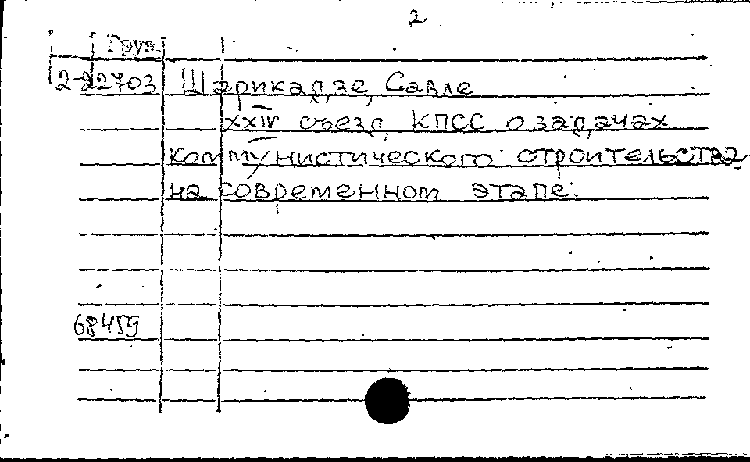 2
Груз.
2-22703 Шарикадзе, Савле
XXIV съезд КПСС о задачах
коммунистического строительства
на современном этапе.
68459